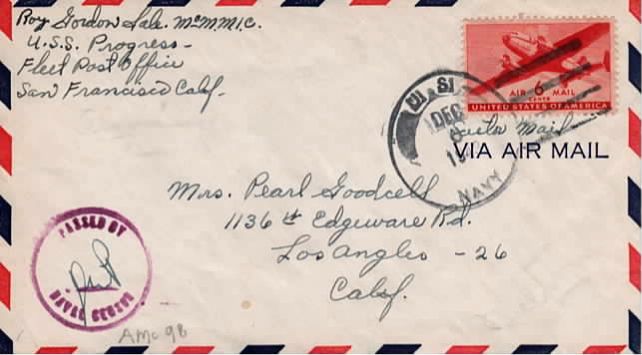 Roy Gordon Sale. McM.M.1.C.
U.S.S. Progress-
Fleet Post Office
San Francisco Calif.
6
AIR MAIL
CENTS
UNITED STATES OF AMERICA
U.S.
DEC
NAVY
Mail
VIA AIR MAIL
Mrs. Pearl Goodcell
1136 1/2 Edgeware Rd.
Los Angles - 26
Calif.
PASSED BY
NAVAL CENSOR
AMc 98